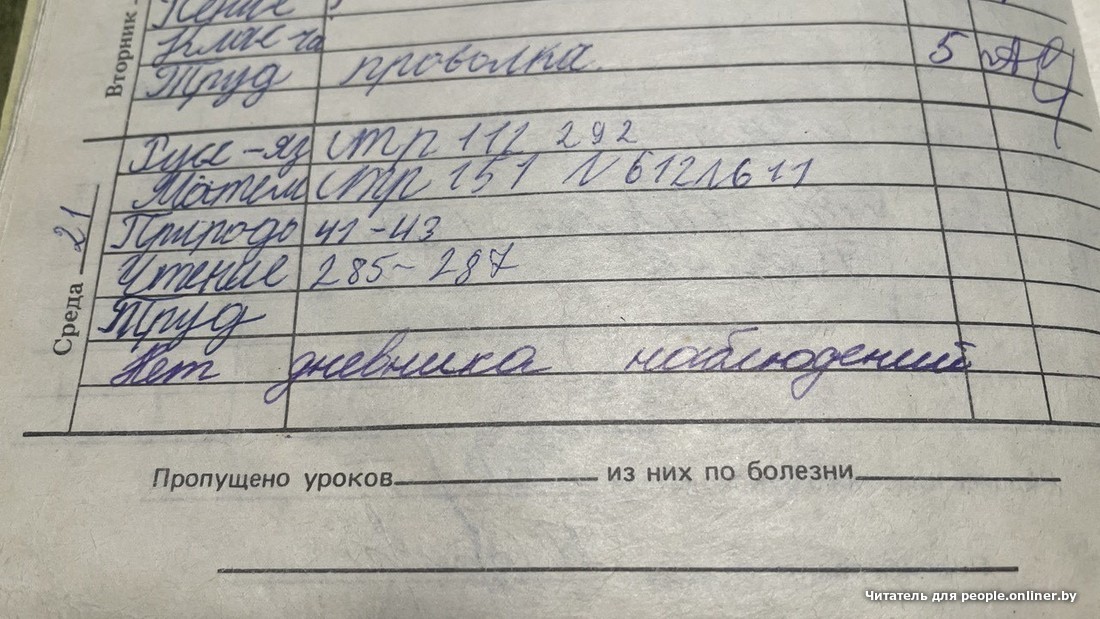 Вторник
Пение
Клас-ча
Труд проволка 5
Среда 21
Русс-яз стр 112 292
Матем стр 151 N 612 N 611
Природо 41-43
Чтение 285-287
Труд
Нет дневника наблюдений
Пропущено уроков из них по болезни
Читатель для people.onliner.by